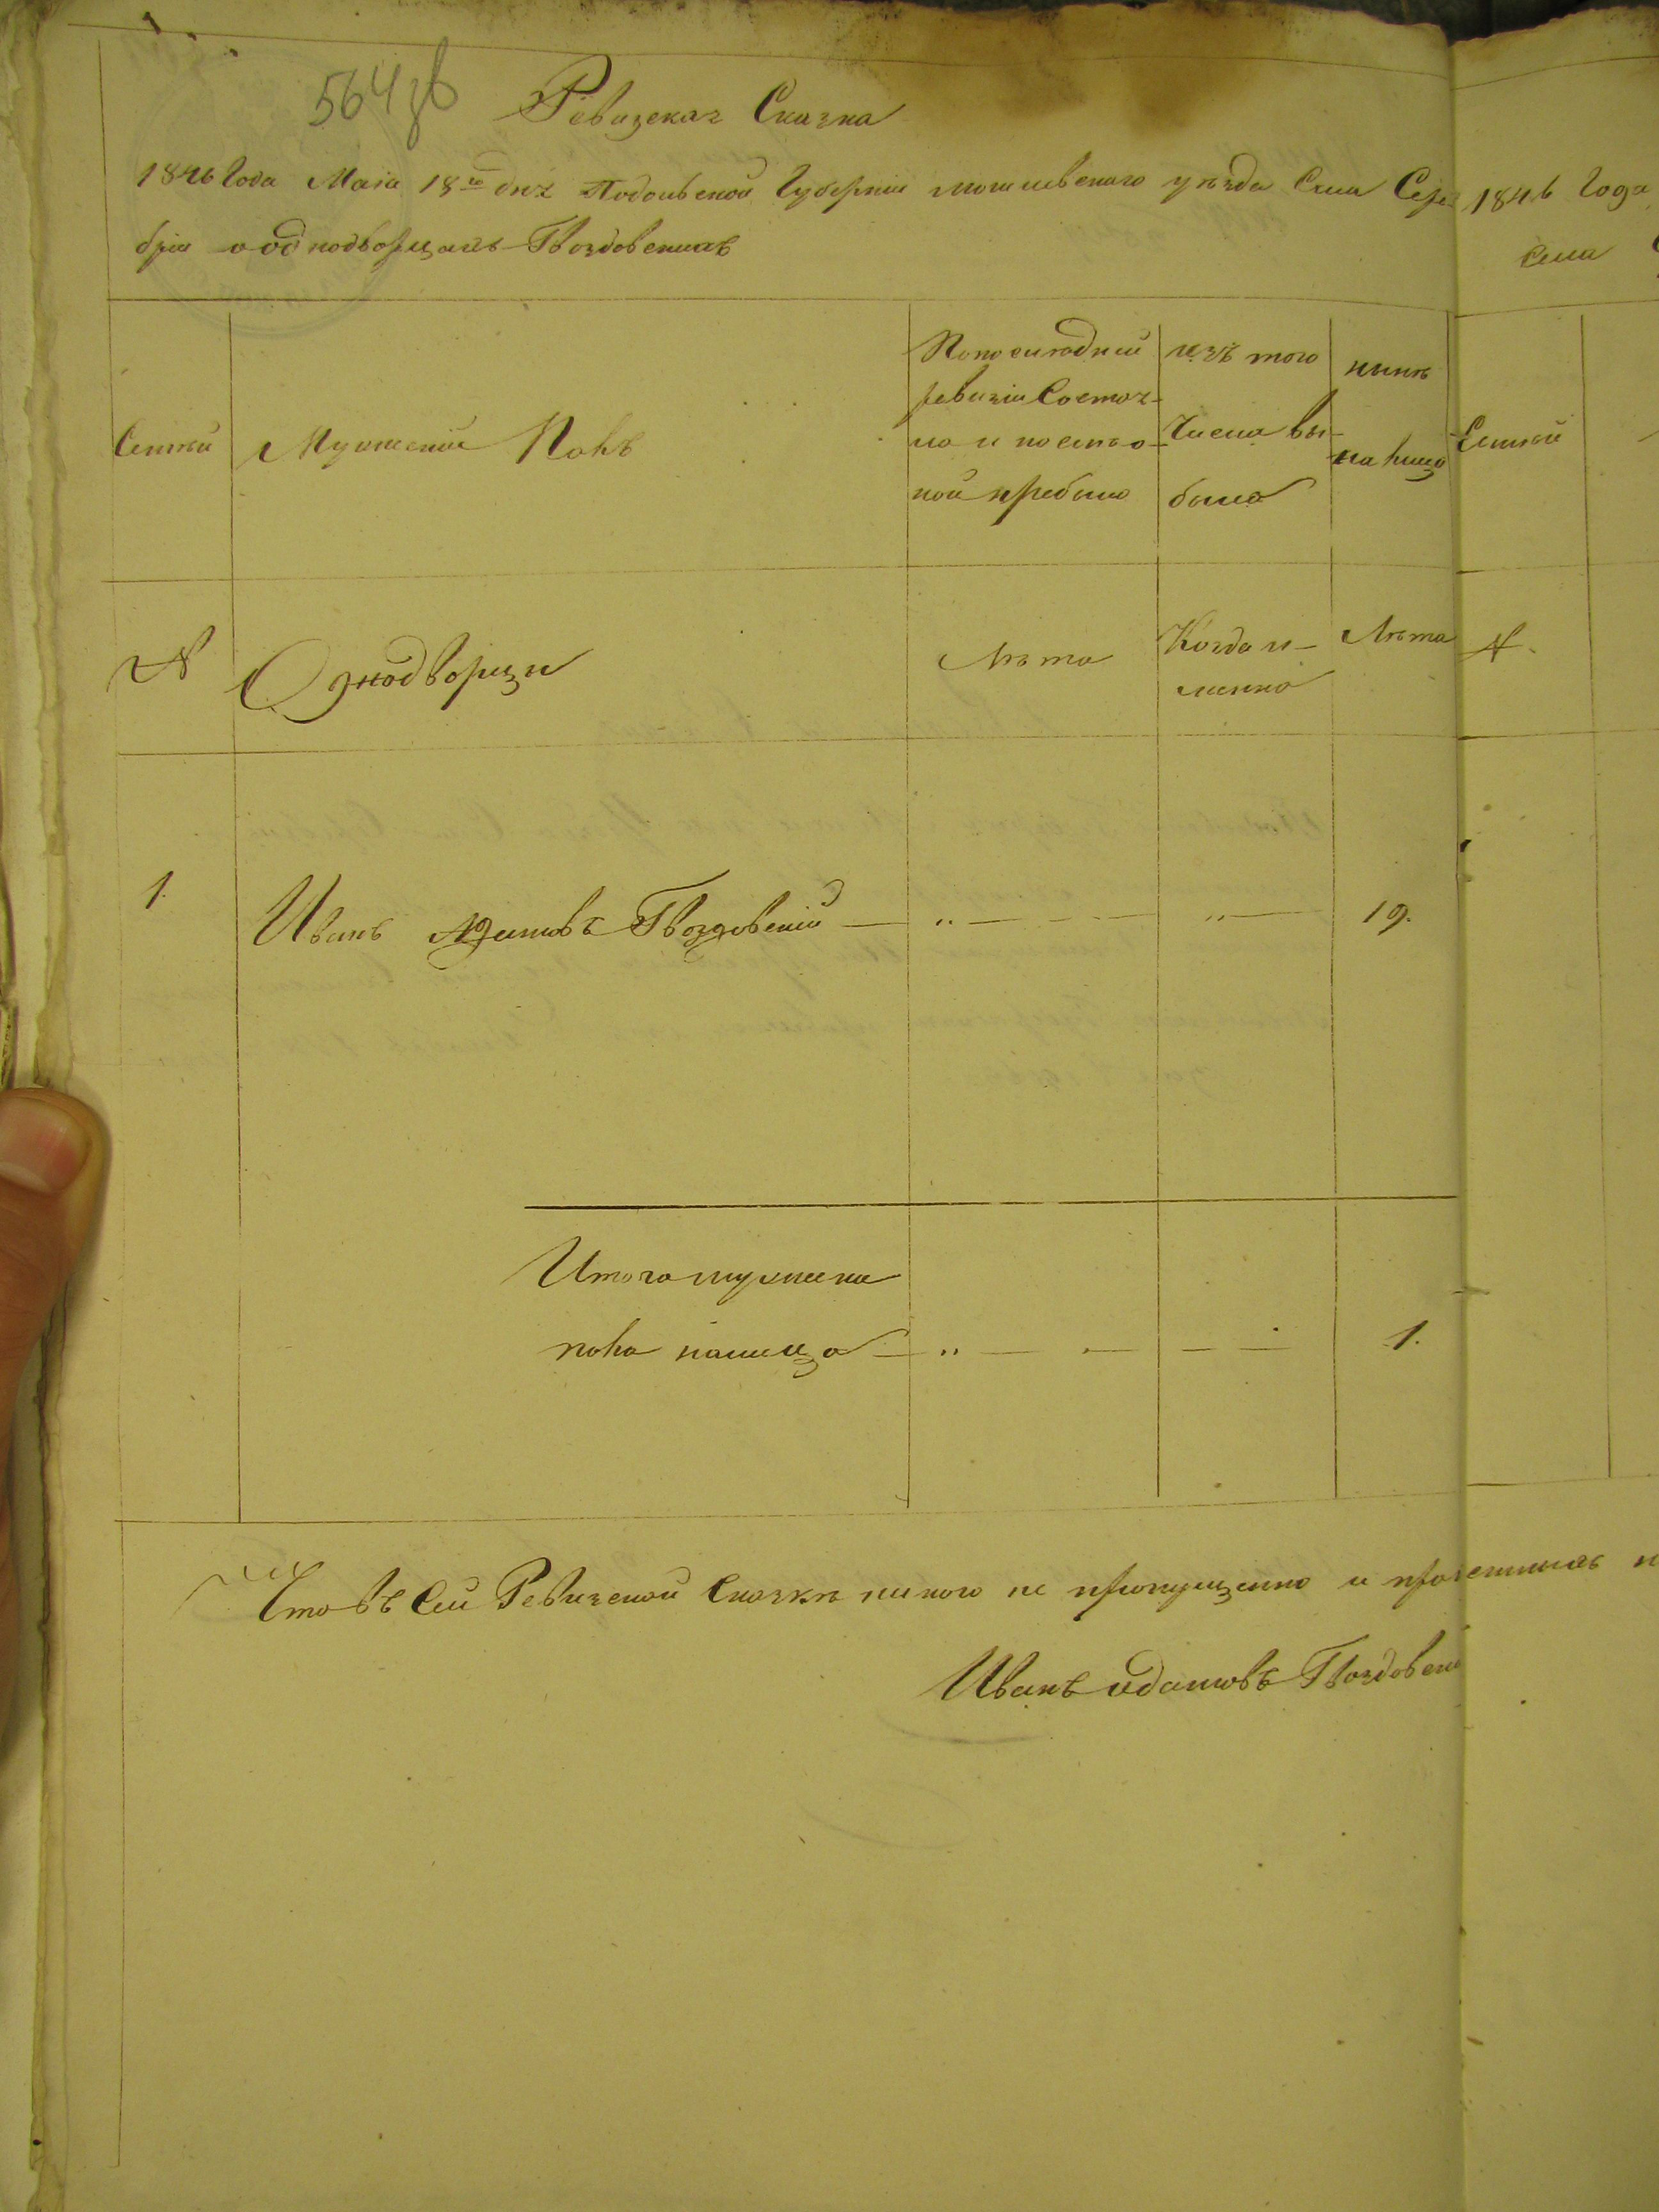 564 зв
Ревизская Сказка
1846 Года Маія 18го дня Подольской Губерніи могилевскаго уѣзда Села Сере
бріи о однодворцахъ Гвоздовскихъ
Семьи
Мужескій Полъ
По последней
ревизіи Состоя-
ло и после о-
ной прибыло
изъ того
Числа вы-
было
нынѣ
на лицо
№
Однодворци
Лѣта
Когда и-
менно
Лѣта
1.
Иванъ Адамовъ Гвоздовскій — „ — „ — 19.
Итого мужеска
пола налицо — „ — — — 1.
Что въ Сей Ревизской Сказкѣ никого не пропущенно и
Иванъ Адамовъ Гвоздовск
1846 Года
Села
Семьи
№.